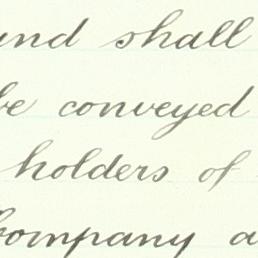 und shall
be conveyed
holders of
Company a